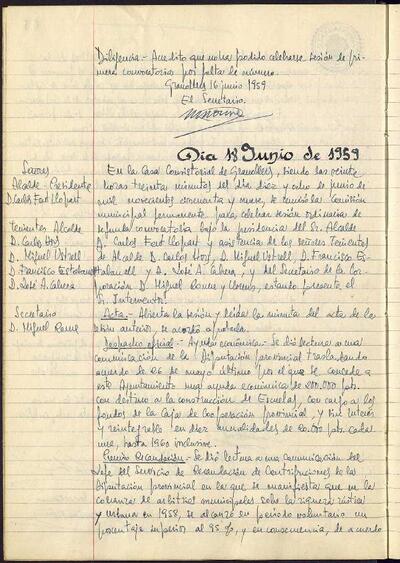 Diligencia.- Acredito que no ha podido celebrarse sesión de pri-
mera convocatoria por falta de número.
Granollers 16 junio 1959
El Secretario.
Día 18 Junio de 1959
Sres.
Alcalde-Presidente
D. Carlos Font Llopart
Tenientes Alcalde
D. Carlos
D. Miguel Ustrell
D. Francisco Estabanell
D. José A. Cabrera
Secretario
D. Miguel Roura
En la Casa Consistorial de Granollers, siendo las veinte
horas treinta minutos del día diez y ocho de junio de
mil novecientos cincuenta y nueve, se reunió la Comisión
municipal permanente, para celebrar sesión ordinaria de
segunda convocatoria bajo la presidencia del Sr. Alcalde
D. Carlos Font Llopart y asistencia de los señores Tenientes
de Alcalde D. Carlos D. Miguel Ustrell, D. Francisco Es-
tabanell y D. José A. Cabrera; y del Secretario de la Cor-
poración D. Miguel Roura y estando presente el
Sr. Interventor.
Acta.- Abierta la sesión y leída la minuta del acta de la
sesión anterior, se acordó aprobarla.
Despacho oficial.- Ayuda económica.- Se dió lectura a una
comunicación de la Diputación provincial trasladando
acuerdo de 26 de mayo último por el que se concede a
este Ayuntamiento una ayuda económica de 200.000 pts.
con destino a la construcción de Escuelas, con cargo a los
fondos de la Caja de Cooperación provincial, y sin interés
y reintegrable en diez anualidades de 20.000 pts. cada
una, hasta 1960 inclusive.
Premio Recaudación.- Se dió lectura a una comunicación del
Jefe del Servicio de Recaudación de Contribuciones de la
Diputación provincial en la que se manifiesta que en la
cobranza de arbitrios municipales sobre la riqueza rústica
y urbana en 1958, se alcanzó en período voluntario un
porcentaje superior al 95 %, y en consecuencia, de acuerdo